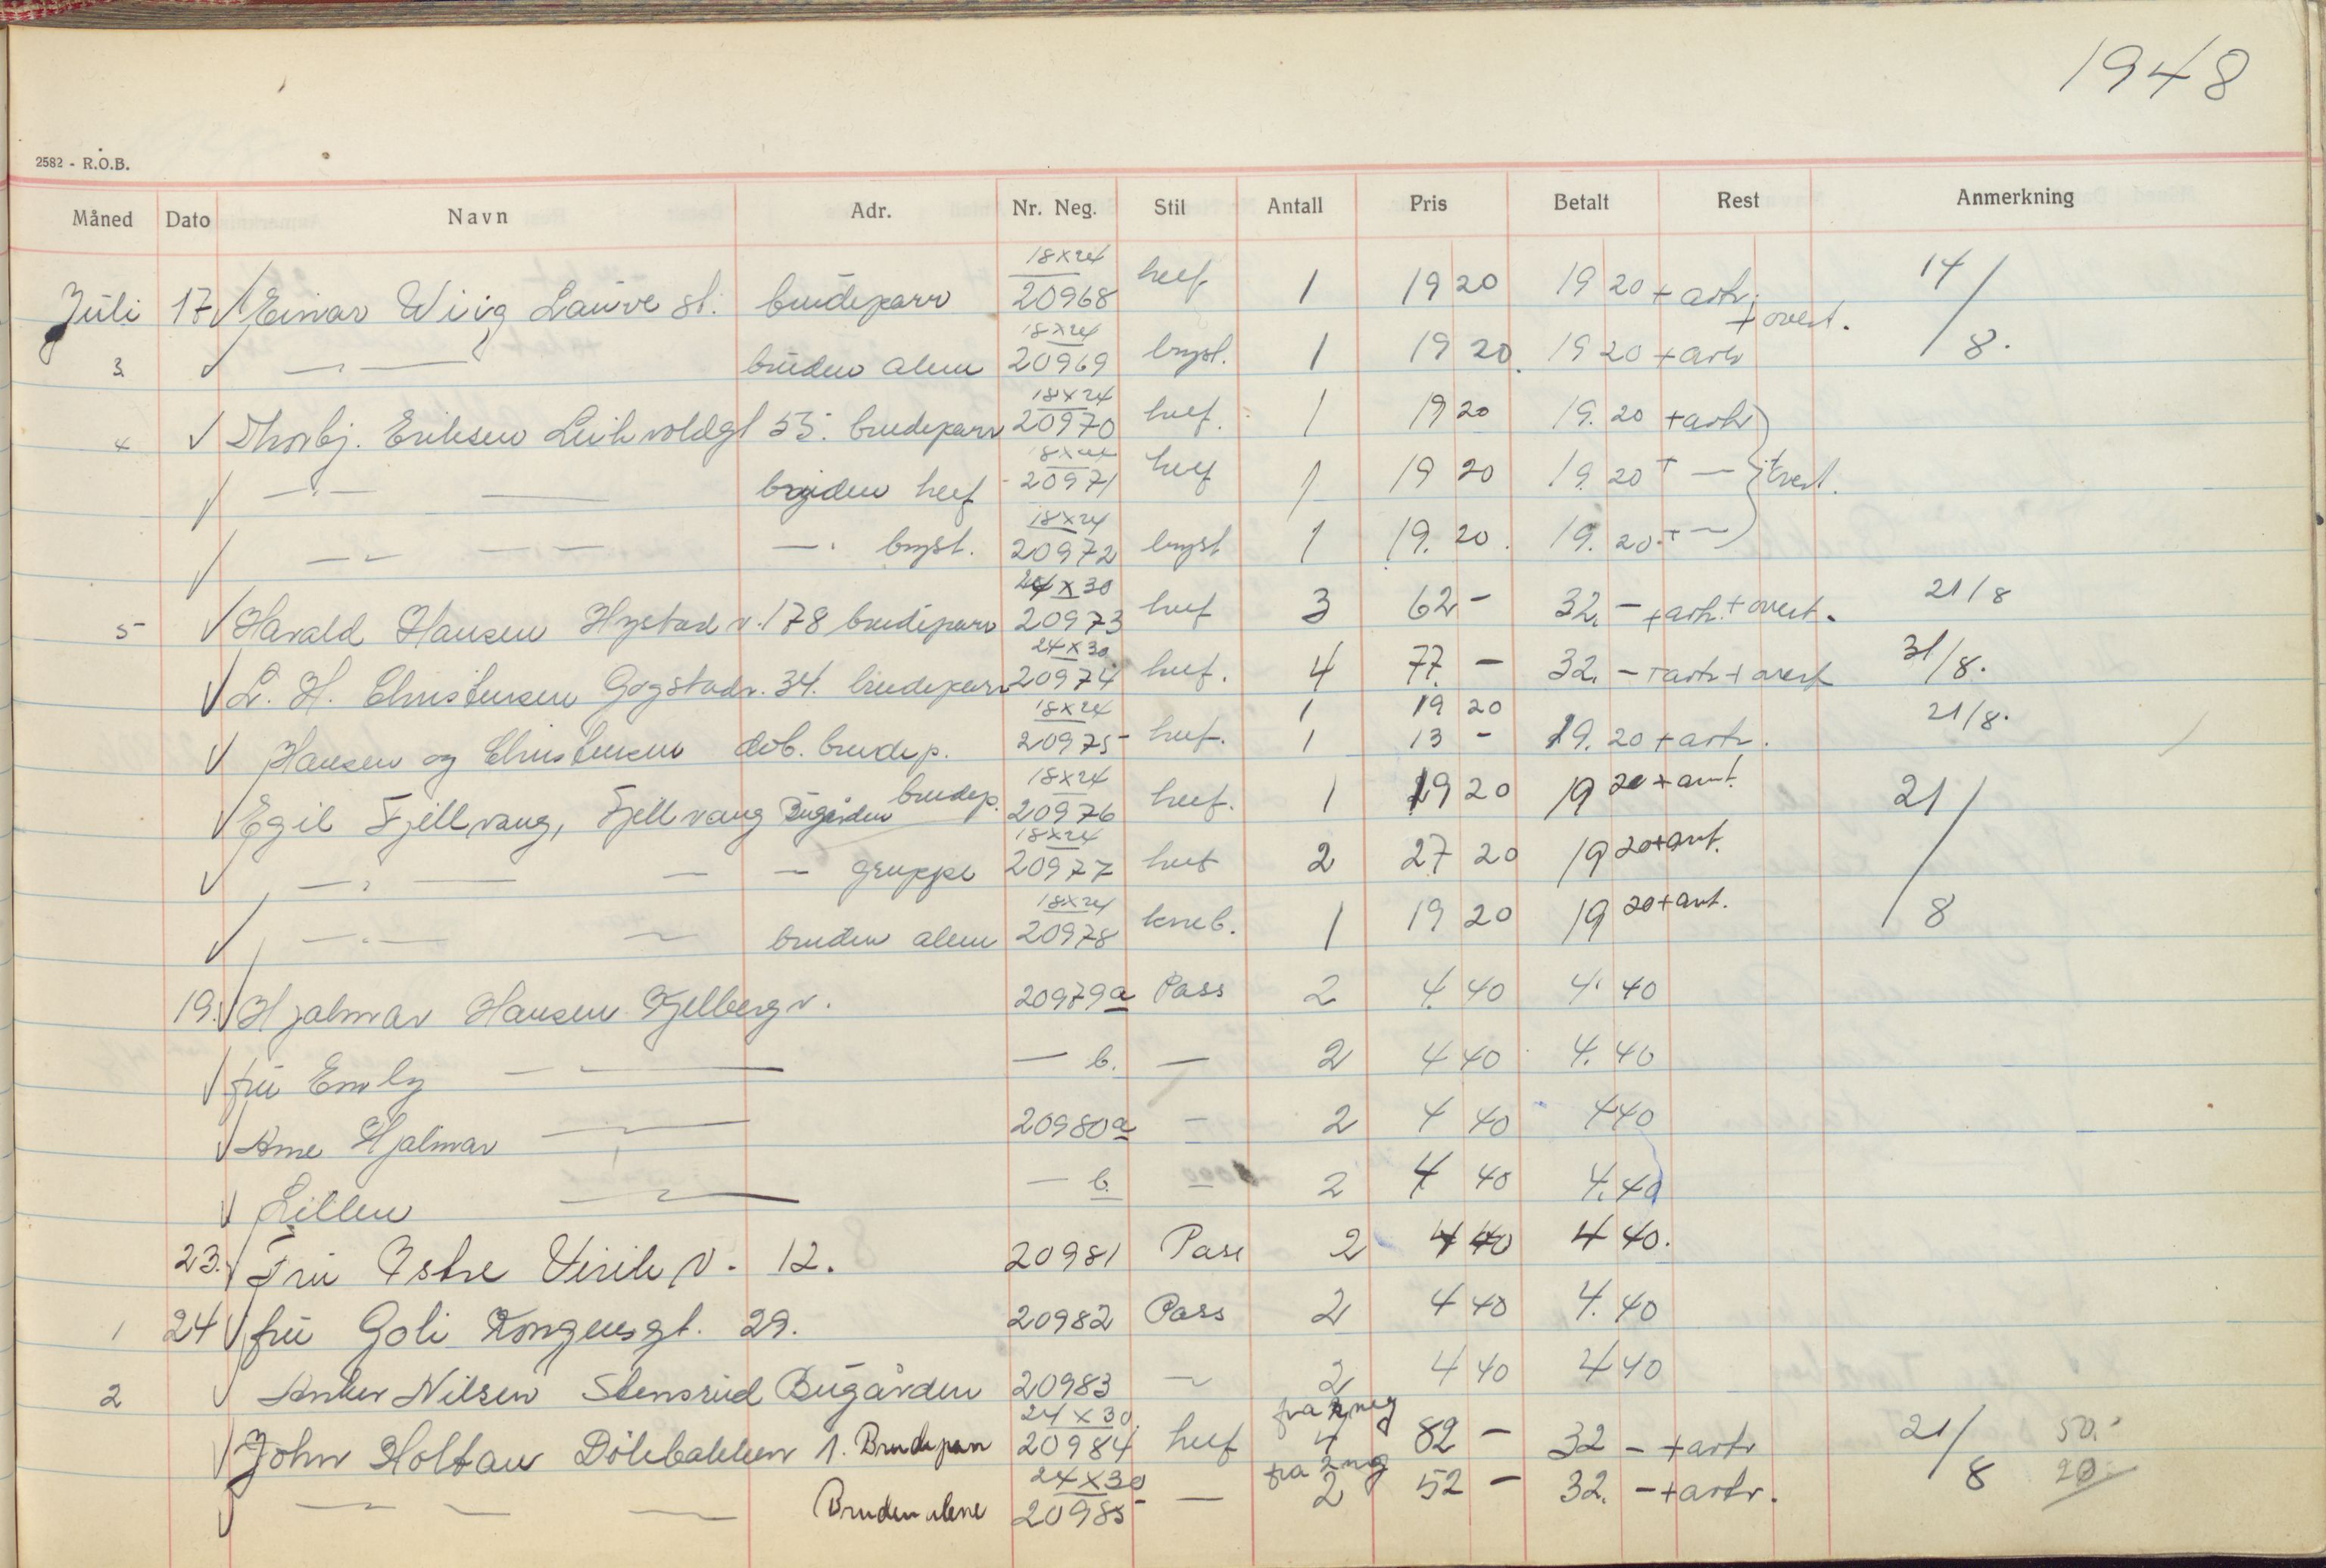 1948
2582 - R.O.B.
Måned Dato Navn Adr. Nr. Neg. Stil Antall Pris Betalt Rest Anmerkning
Juli 17 Einar Wiig Lauve st. brudepar 18x24 20968 helf 1 19 20 19 20 + avtr. + overt. 14/8.
3 bruden alene 18x24 20969 bryst. 1 19 20. 19 20 + avtr
4 Thorbj. Eriksen 55. brudepar 18x24 20970 helf. 1 19 20 19. 20 + avtr
— " — bruden helf 18x24 20971 helf 1 19 20 19. 20 + — overt.
— " — — " bryst. 18x24 20972 bryst 1 19. 20. 19. 20. + —
5 Harald Hansen Hystad v. 178 brudepar 24x30 20973 helf 3 62 - 32. - + avtr. + overt. 21/8
L. H. Christensen Gogstadv. 34. brudepar 24x30 20974 helf. 4 77. - 32. - + avtr + overt 31/8.
Hansen og Christensen dob. brudep. 18x24 20975 helf. 1 19 20 1 13 - 19. 20 + avtr. 21/8.
Egil Fjellvang, Fjellvang Bugården brudep. 18x24 20976 helf. 1 19 20 19 20 + avt. 21/8
— " — — — gruppe 18x24 20977 helf 2 27 20 19 20 + avt.
— " — — bruden alene 18x24 20978 kneb. 1 19 20 19 20 + avt.
19. Hjalmar Hansen Fjellbergv. 20979a Pass 2 4. 40 4. 40
fru Emly — " — — b. — 2 4 40 4. 40
Arne Hjalmar — " — 20980a — 2 4 40 4 40
Lillen — " — — b. — 2 4 40 4. 40
23. Fru Istre v. 12. 20981 Pass 2 4 40 4 40.
1 24 fru Goli Kongensgt. 29. 20982 Pass 2 4 40 4. 40
2 Anker Nilsen Stensrud Bugården 20983 — 2 4 40 4 40
John Holtan Dölebakken 1. Brudepar 24x30. 20984 helf fra 2 neg 4 82 - 32 - + avtr 21/8 50.-
— — — Bruden alene 24x30 20985 — fra 2 neg 2 52 - 32. - + avtr. 20